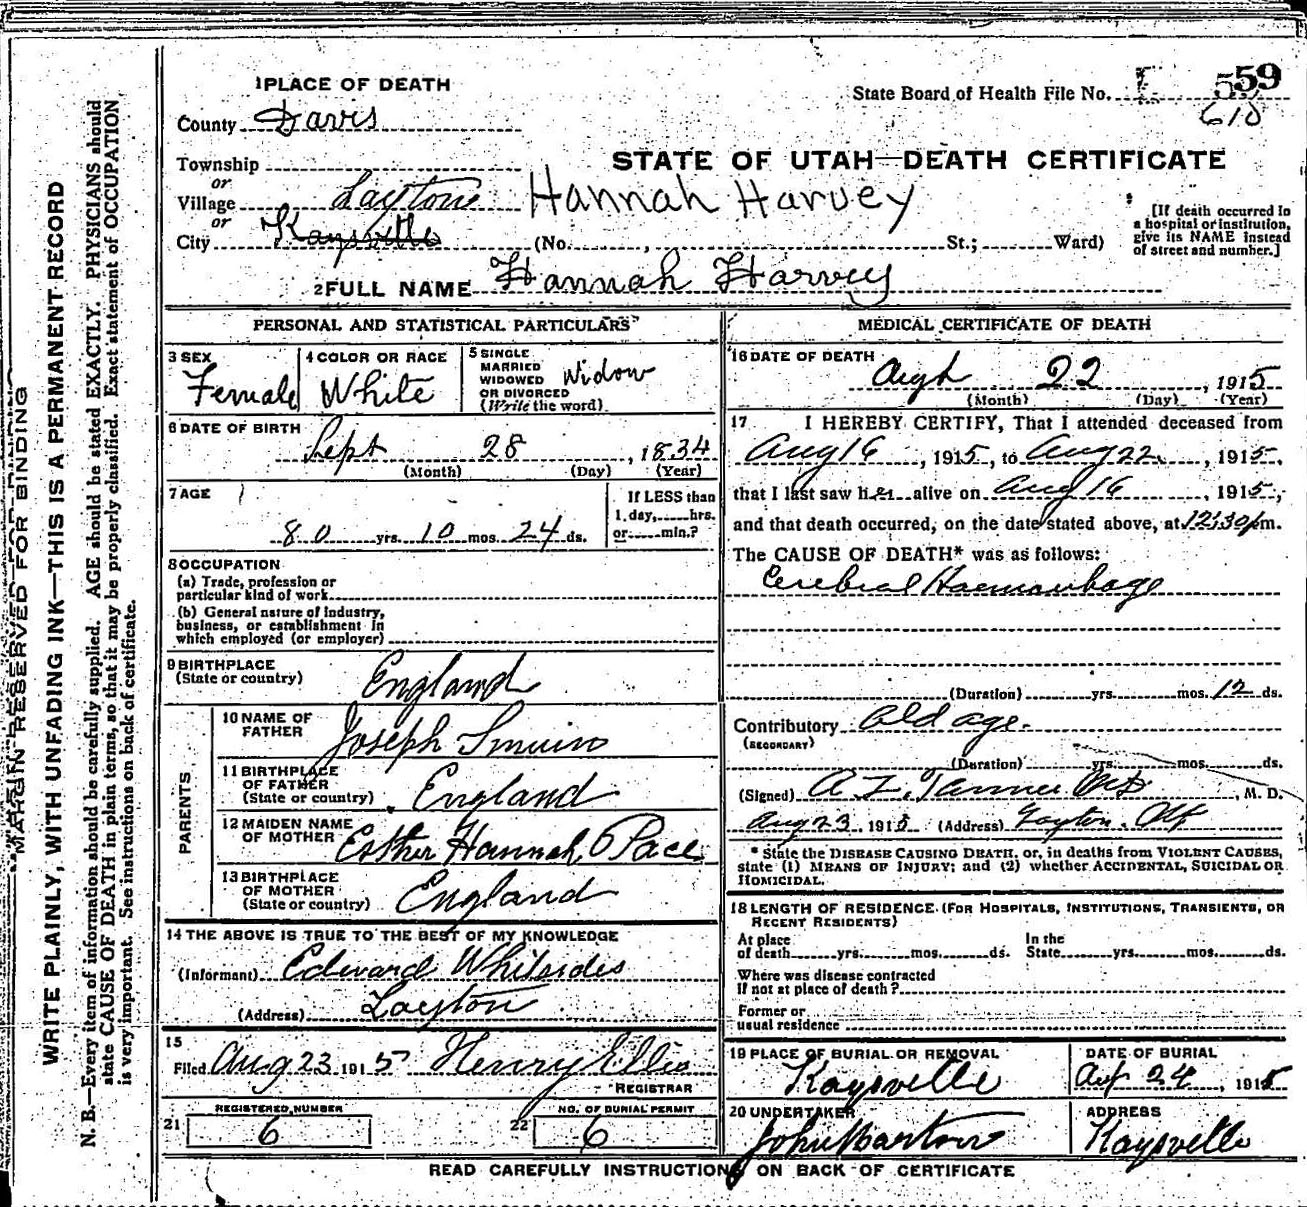 1 PLACE OF DEATH
State Board of Health File No. 559
610
County Davis
STATE OF UTAH—DEATH CERTIFICATE
Township
or
Village Layton Hannah Harvey
or
City Kaysville (No. , St.; Ward)
[If death occurred in a hospital or institution, give its NAME instead of street and number.]
2 FULL NAME Hannah Harvey
PERSONAL AND STATISTICAL PARTICULARS
3 SEX Female
4 COLOR OR RACE White
5 SINGLE MARRIED WIDOWED OR DIVORCED (Write the word) Widow
6 DATE OF BIRTH
Sept 28, 1834
(Month) (Day) (Year)
7 AGE
80 yrs. 10 mos. 24 ds.
If LESS than 1 day, hrs. or min.?
8 OCCUPATION
(a) Trade, profession or particular kind of work
(b) General nature of industry, business, or establishment in which employed (or employer)
9 BIRTHPLACE (State or country) England
PARENTS
10 NAME OF FATHER Joseph Smuin
11 BIRTHPLACE OF FATHER (State or country) England
12 MAIDEN NAME OF MOTHER Esther Hannah Pace
13 BIRTHPLACE OF MOTHER (State or country) England
14 THE ABOVE IS TRUE TO THE BEST OF MY KNOWLEDGE
(Informant) Edward Whitsides
(Address) Layton
15
Filed Aug 23 1915 Henry Ellis
REGISTRAR
REGISTERED NUMBER
21 6
NO. OF BURIAL PERMIT
22 6
MEDICAL CERTIFICATE OF DEATH
16 DATE OF DEATH
Augt 22, 1915
(Month) (Day) (Year)
17 I HEREBY CERTIFY, That I attended deceased from
Aug 16, 1915, to Aug 22, 1915,
that I last saw her alive on Aug 16, 1915,
and that death occurred, on the date stated above, at 12:30 p m.
The CAUSE OF DEATH* was as follows:
Cerebral Haemorrhage
(Duration) yrs. mos. 12 ds.
Contributory Old age.
(SECONDARY)
(Duration) yrs. mos. ds.
(Signed) A. Z. Tanner MD, M. D.
Aug 23 1915 (Address) Layton. Ut
* State the DISEASE CAUSING DEATH, or, in deaths from VIOLENT CAUSES, state (1) MEANS OF INJURY; and (2) whether ACCIDENTAL, SUICIDAL OR HOMICIDAL.
18 LENGTH OF RESIDENCE (FOR HOSPITALS, INSTITUTIONS, TRANSIENTS, OR RECENT RESIDENTS)
At place of death yrs. mos. ds. In the State yrs. mos. ds.
Where was disease contracted if not at place of death?
Former or usual residence
19 PLACE OF BURIAL OR REMOVAL Kaysville
DATE OF BURIAL Aug 24, 1915
20 UNDERTAKER John Barton
ADDRESS Kaysville
READ CAREFULLY INSTRUCTIONS ON BACK OF CERTIFICATE
MARGIN RESERVED FOR BINDING
WRITE PLAINLY, WITH UNFADING INK—THIS IS A PERMANENT RECORD
N. B.—Every item of information should be carefully supplied. AGE should be stated EXACTLY. PHYSICIANS should
state CAUSE OF DEATH in plain terms, so that it may be properly classified. Exact statement of OCCUPATION
is very important. See instructions on back of certificate.